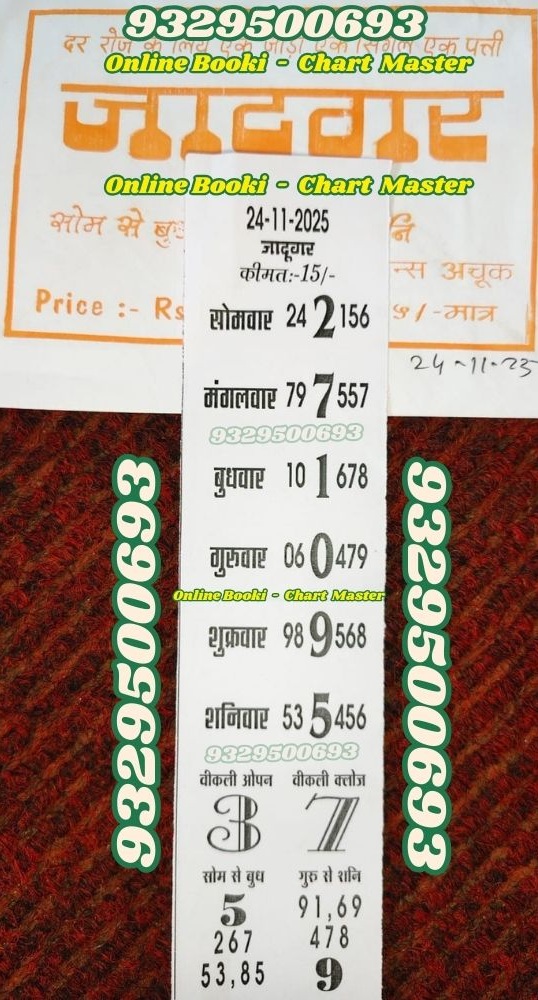 9329500693
दर रोज के लिये एक जोड़ी एक सिंगल एक पत्ती
Online Booki - Chart Master
जादूगर
Online Booki - Chart Master
सोम से बु
नि
न्स अचूक
Price :- Rs
५/-मात्र
24-11-25
24-11-2025
जादूगर
कीमत:-15/-
सोमवार 24 2 156
मंगलवार 79 7 557
9329500693
बुधवार 10 1 678
गुरुवार 06 0 479
Online Booki - Chart Master
शुक्रवार 98 9 568
शनिवार 53 5 456
9329500693
वीकली ओपन वीकली क्लोज
3 7
सोम से बुध गुरु से शनि
5 91,69
267 478
53,85 9
9329500693
9329500693